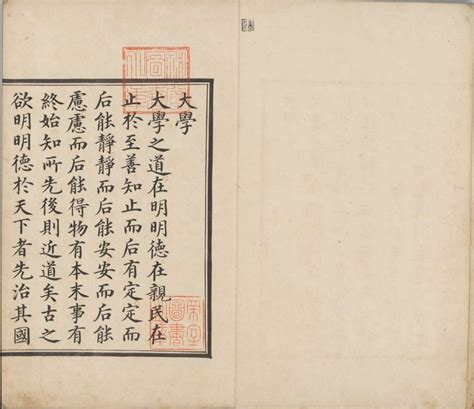 大學
大學之道在明明德在親民在
止於至善知止而后有定定而
后能靜靜而后能安安而后能
慮慮而后能得物有本末事有
終始知所先後則近道矣古之
欲明明德於天下者先治其國